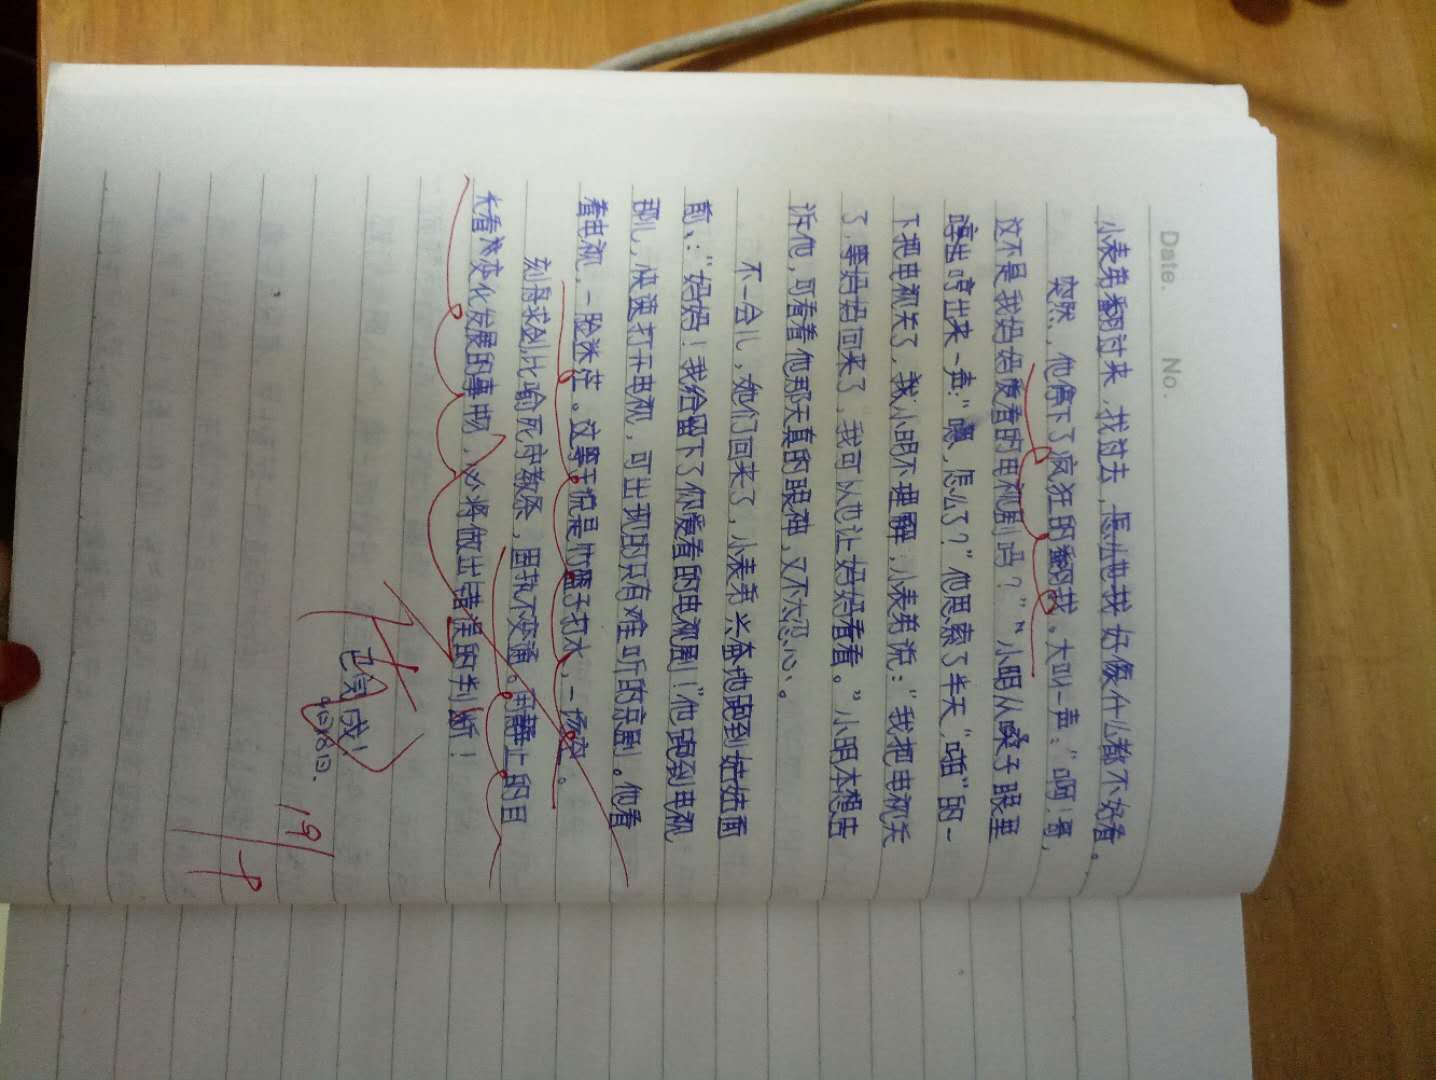 Date. No.
小表弟翻过来,找过去,怎么也找好像什么都不好看。
突然,他停下了疯狂的翻找。大叫一声:“啊!哥,
这不是我妈妈爱看的电视剧吗?”“小明从嗓子眼里
哼出哼出来一声:“嗯,怎么了?”他思索了半天,“啪”的一
下把电视关了,我小明不理解,小表弟说:“我把电视关
了,等妈妈回来了,我可以也让妈妈看看。”小明本想告
诉他,可看看他那天真的眼神,又不太忍心。
不一会儿,她们回来了,小表弟兴奋地跑到姑姑面
前,:“妈妈!我给留下了你爱看的电视剧!”他跑到电视
那儿,快速打开电视,可出现的只有难听的京剧。他看
着电视,一脸迷茫。这等于说是竹篮子打水,一场空。
刻舟求剑比喻死守教条,固执不变通。用静止的目
光看待变化发展的事物,必将做出错误的判断!
已完成!
9月8日.
19/9